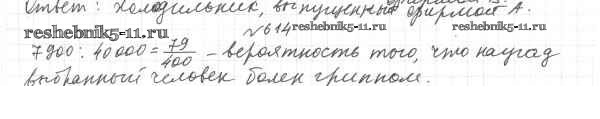 Ответ: холодильник, выпущенный фирмой А.
reshebnik5-11.ru №614 reshebnik5-11.ru reshebnik5-11.ru
7900 : 40000 = 79/400 – вероятность того, что наугад
выбранный человек болен гриппом.